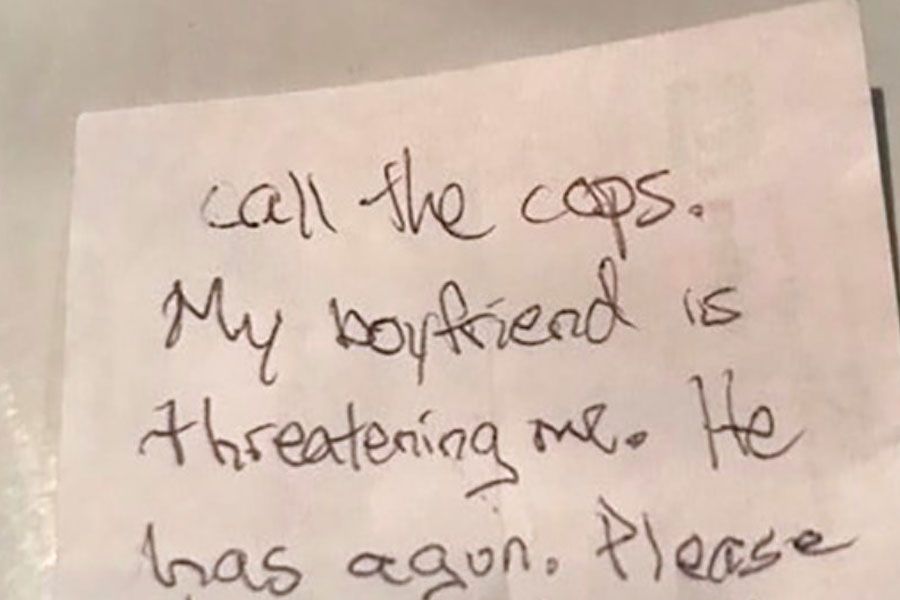 call the cops.
My boyfriend is
threatening me. He
has a gun. Please